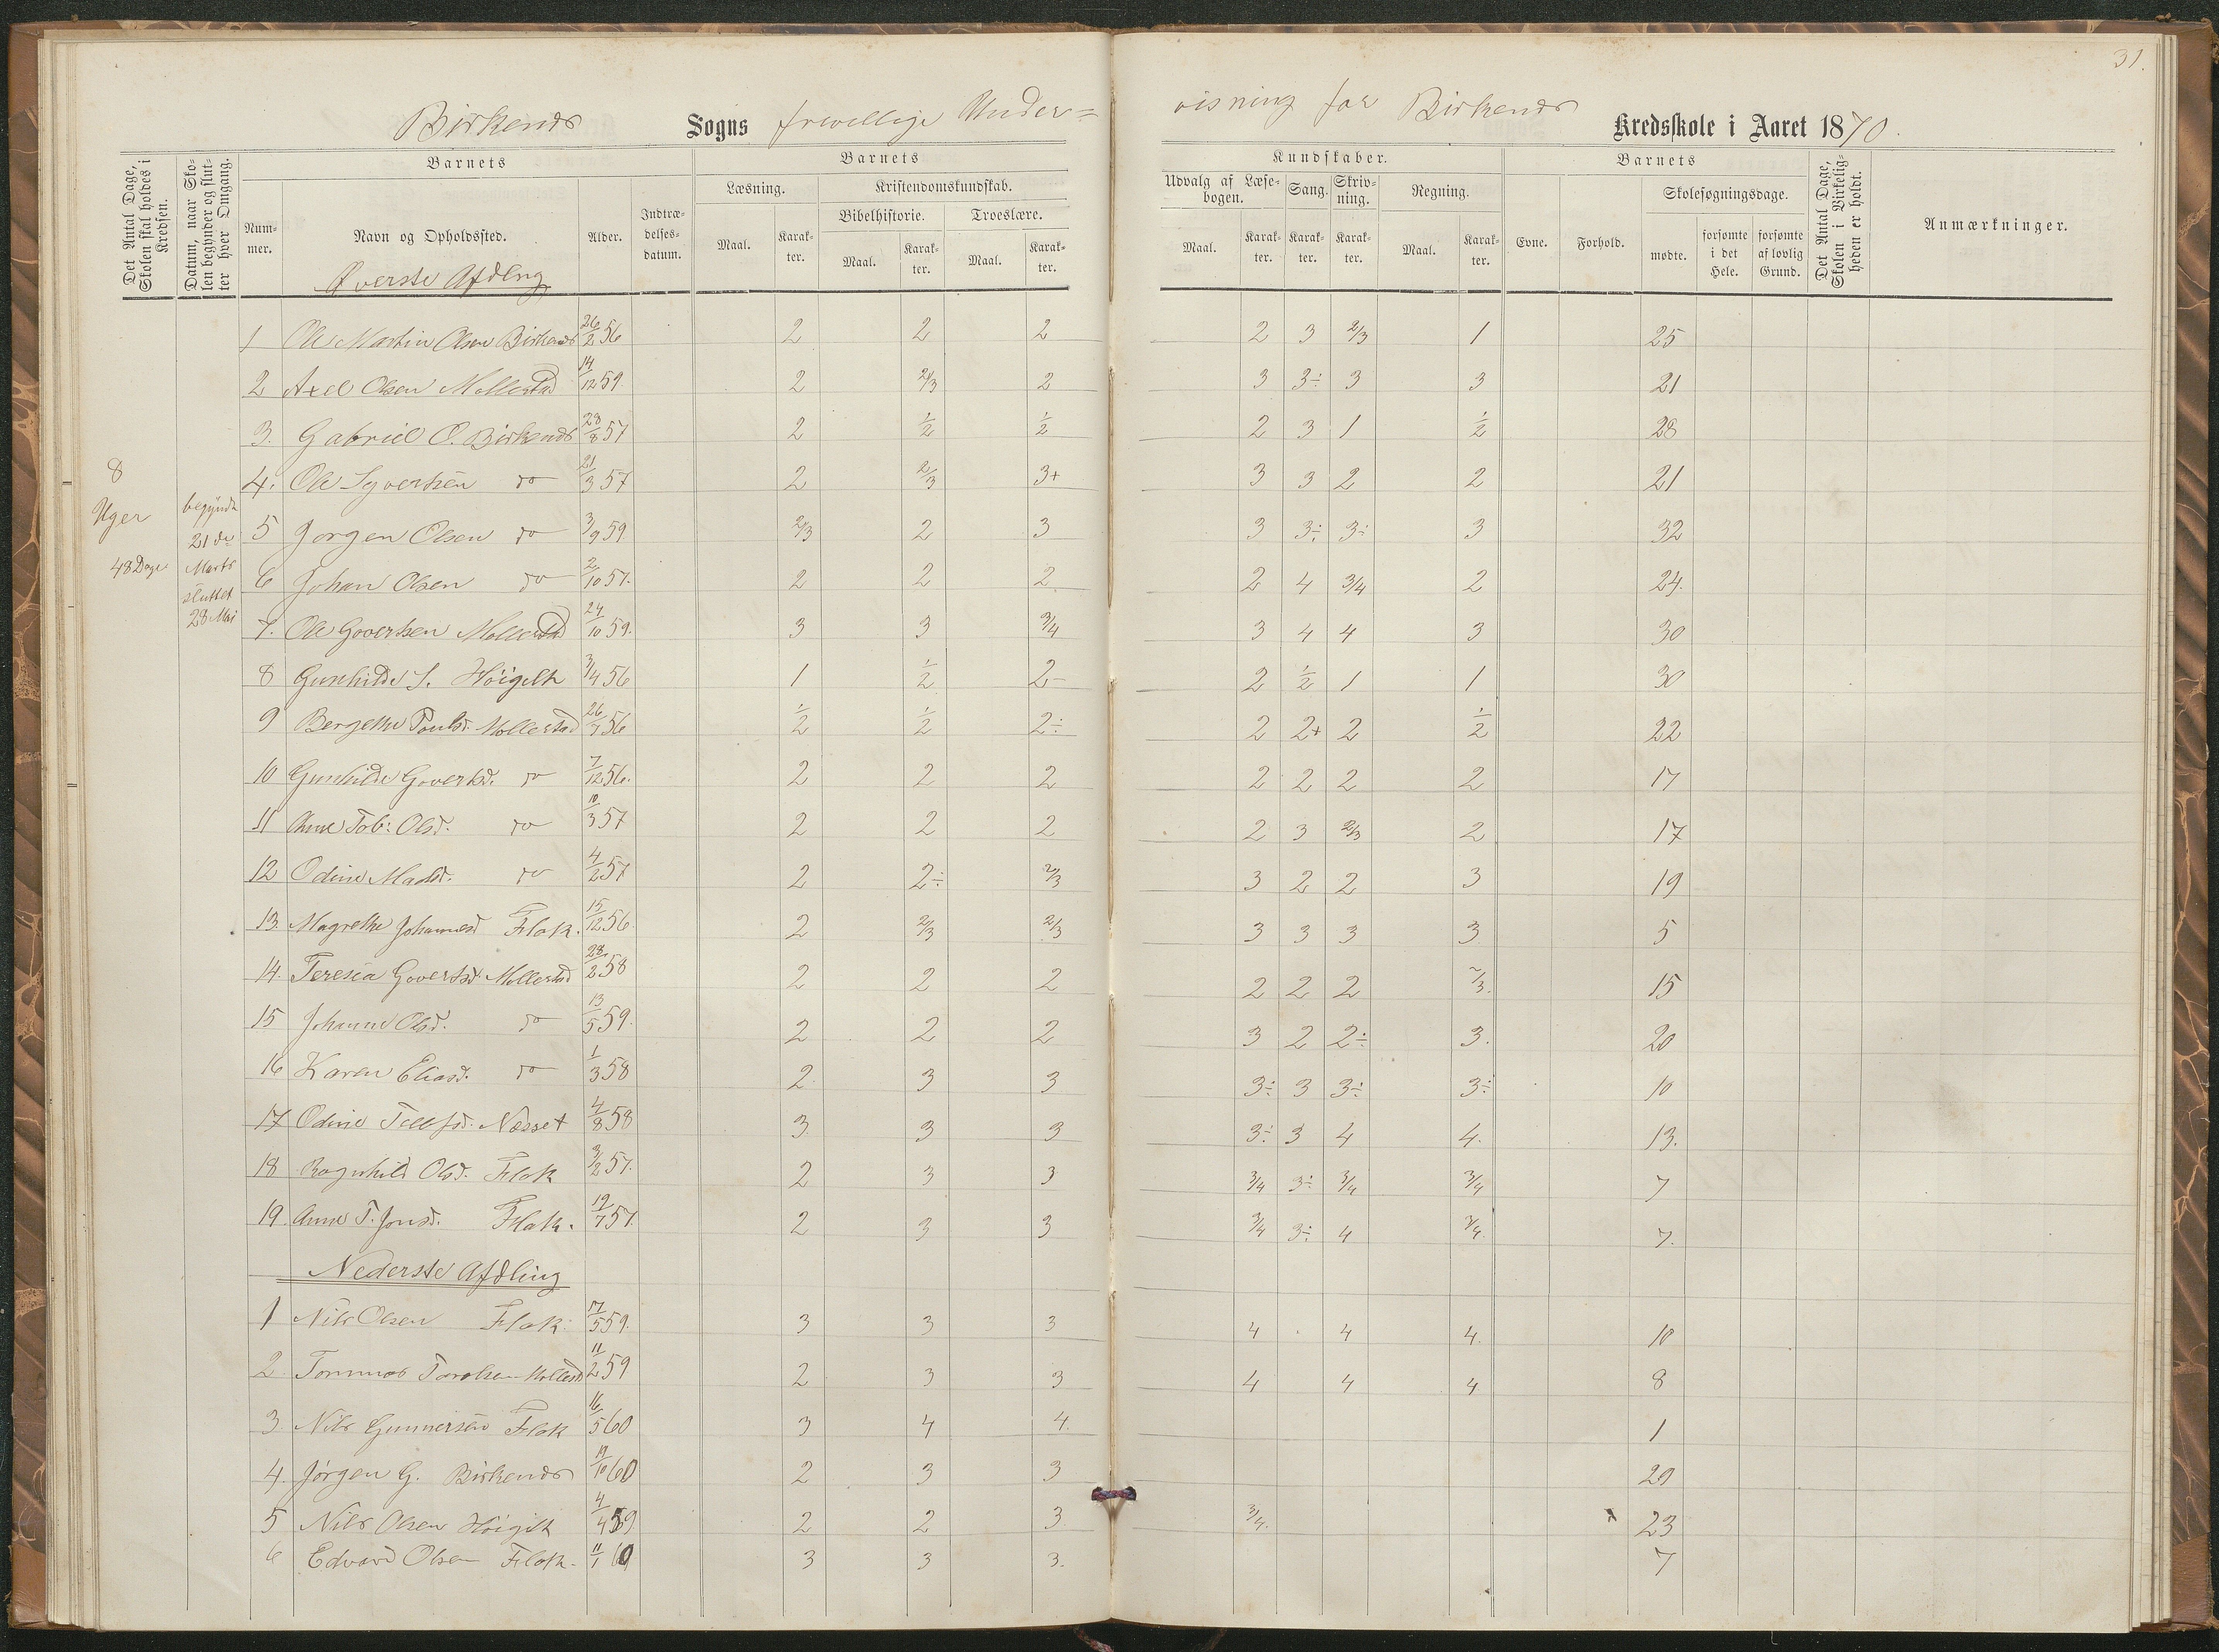 31.
Birkenes Sogns frivillige Under= visning for Birkenes Kredsskole i Aaret 1870.
Det Antal Dage, Skolen skal holdes i Kredsen.
Datum, naar Skolen begynder og slutter hver Omgang.
Barnets
Nummer.
Navn og Opholdssted.
Alder.
Indtrædelsesdatum.
Barnets Kundskaber.
Læsning.
Maal. Karakter.
Kristendomskundskab.
Bibelhistorie.
Maal. Karakter.
Troeslære.
Maal. Karakter.
Udvalg af Læsebogen.
Maal. Karakter.
Sang.
Karakter.
Skrivning.
Karakter.
Regning.
Maal. Karakter.
Barnets
Evne. Forhold.
Skolesøgningsdage.
mødte. forsømte i det Hele. forsømte af lovlig Grund.
Det Antal Dage, Skolen i Virkeligheden er holdt.
Anmærkninger.
8
Uger
48 Dage
begyndt
21de
Marts
sluttet
28 Mai
Øverste Afdlng
1 Ole Martin Olsen Birkenes 26/2 56 2 2 2 2 3 2/3 1 25
2 Axel Olsen Mollestad 14/12 59. 2 2/3 2 3 3÷ 3 3 21
3. Gabriel O. Birkenes 28/8 57 2 1/2 1/2 2 3 1 1/2 28
4. Ole Syvertsen do 21/3 57 2 2/3 3+ 3 3 2 2 21
5 Jørgen Olsen do 3/9 59. 2/3 2 3 3 3÷ 3÷ 3 32
6 Johan Olsen do 2/10 57. 2 2 2 2 4 3/4 2 24.
7. Ole Govertsen Mollestad 24/10 59. 3 3 3/4 3 4 4 3 30
8 Gunhilde S. Høigilt 3/4 56 1 1/2 2- 2 1/2 1 1 30
9 Bergethe Poulsd. Mollestad 26/7 56 1/2 1/2 2÷ 2 2+ 2 1/2 22
10 Gunhilde Govertsd. do 7/12 56. 2 2 2 2 2 2 2 17
11 Anne Tob: Olsd. do 10/3 57 2 2 2 2 3 2/3 2 17
12 Odine Madsd. do 4/2 57 2 2÷ 2/3 3 2 2 3 19
13. Magrethe Johannesd Flak. 15/12 56. 2 2/3 2/3 3 3 3 3 5
14. Teresia Govertsd. Mollestad 28/2 58 2 2 2 2 2 2 2/3. 15
15 Johanne Olsd. do 13/5 59. 2 2 2 3 2 2÷ 3. 20
16 Karen Eliasd. do 1/3 58 2 3 3 3÷ 3 3÷ 3÷ 10
17 Odine Tellfsd. Næsset 4/8 58 3 3 3 3÷ 3 4 4. 13.
18 Ragnhild Olsd. Flak 3/2 57. 2 3 3 3/4 3÷ 3/4 3/4 7
19. Anne T. Jensd. Flak. 19/7 57. 2 3 3 3/4 3÷ 4 3/4. 7.
Nederste Afdling
1 Nils Olsen Flak. 17/5 59. 3 3 3 4 4 4. 10
2 Tommas Tarolsen Mollestd 11/2 59 2 3 3 4 4 4 8
3. Nils Gunnersen Flak 16/5 60 3 4 4. 1
4. Jørgen G. Birkenes 19/10 60 2 3 3 20
5 Nils Olsen Høigilt 4/4 59 2 2 3. 3/4. 23
6 Edvard Olsen Flak. 11/1 60 3 3 3. 7